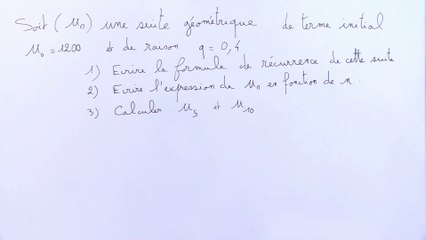 Soit (Un) une suite géométrique de terme initial
U₀ = 1200 et de raison q = 0,4
1) Ecrire la formule de récurrence de cette suite
2) Ecrire l'expression de Un en fonction de n.
3) Calculer U₅ et U₁₀